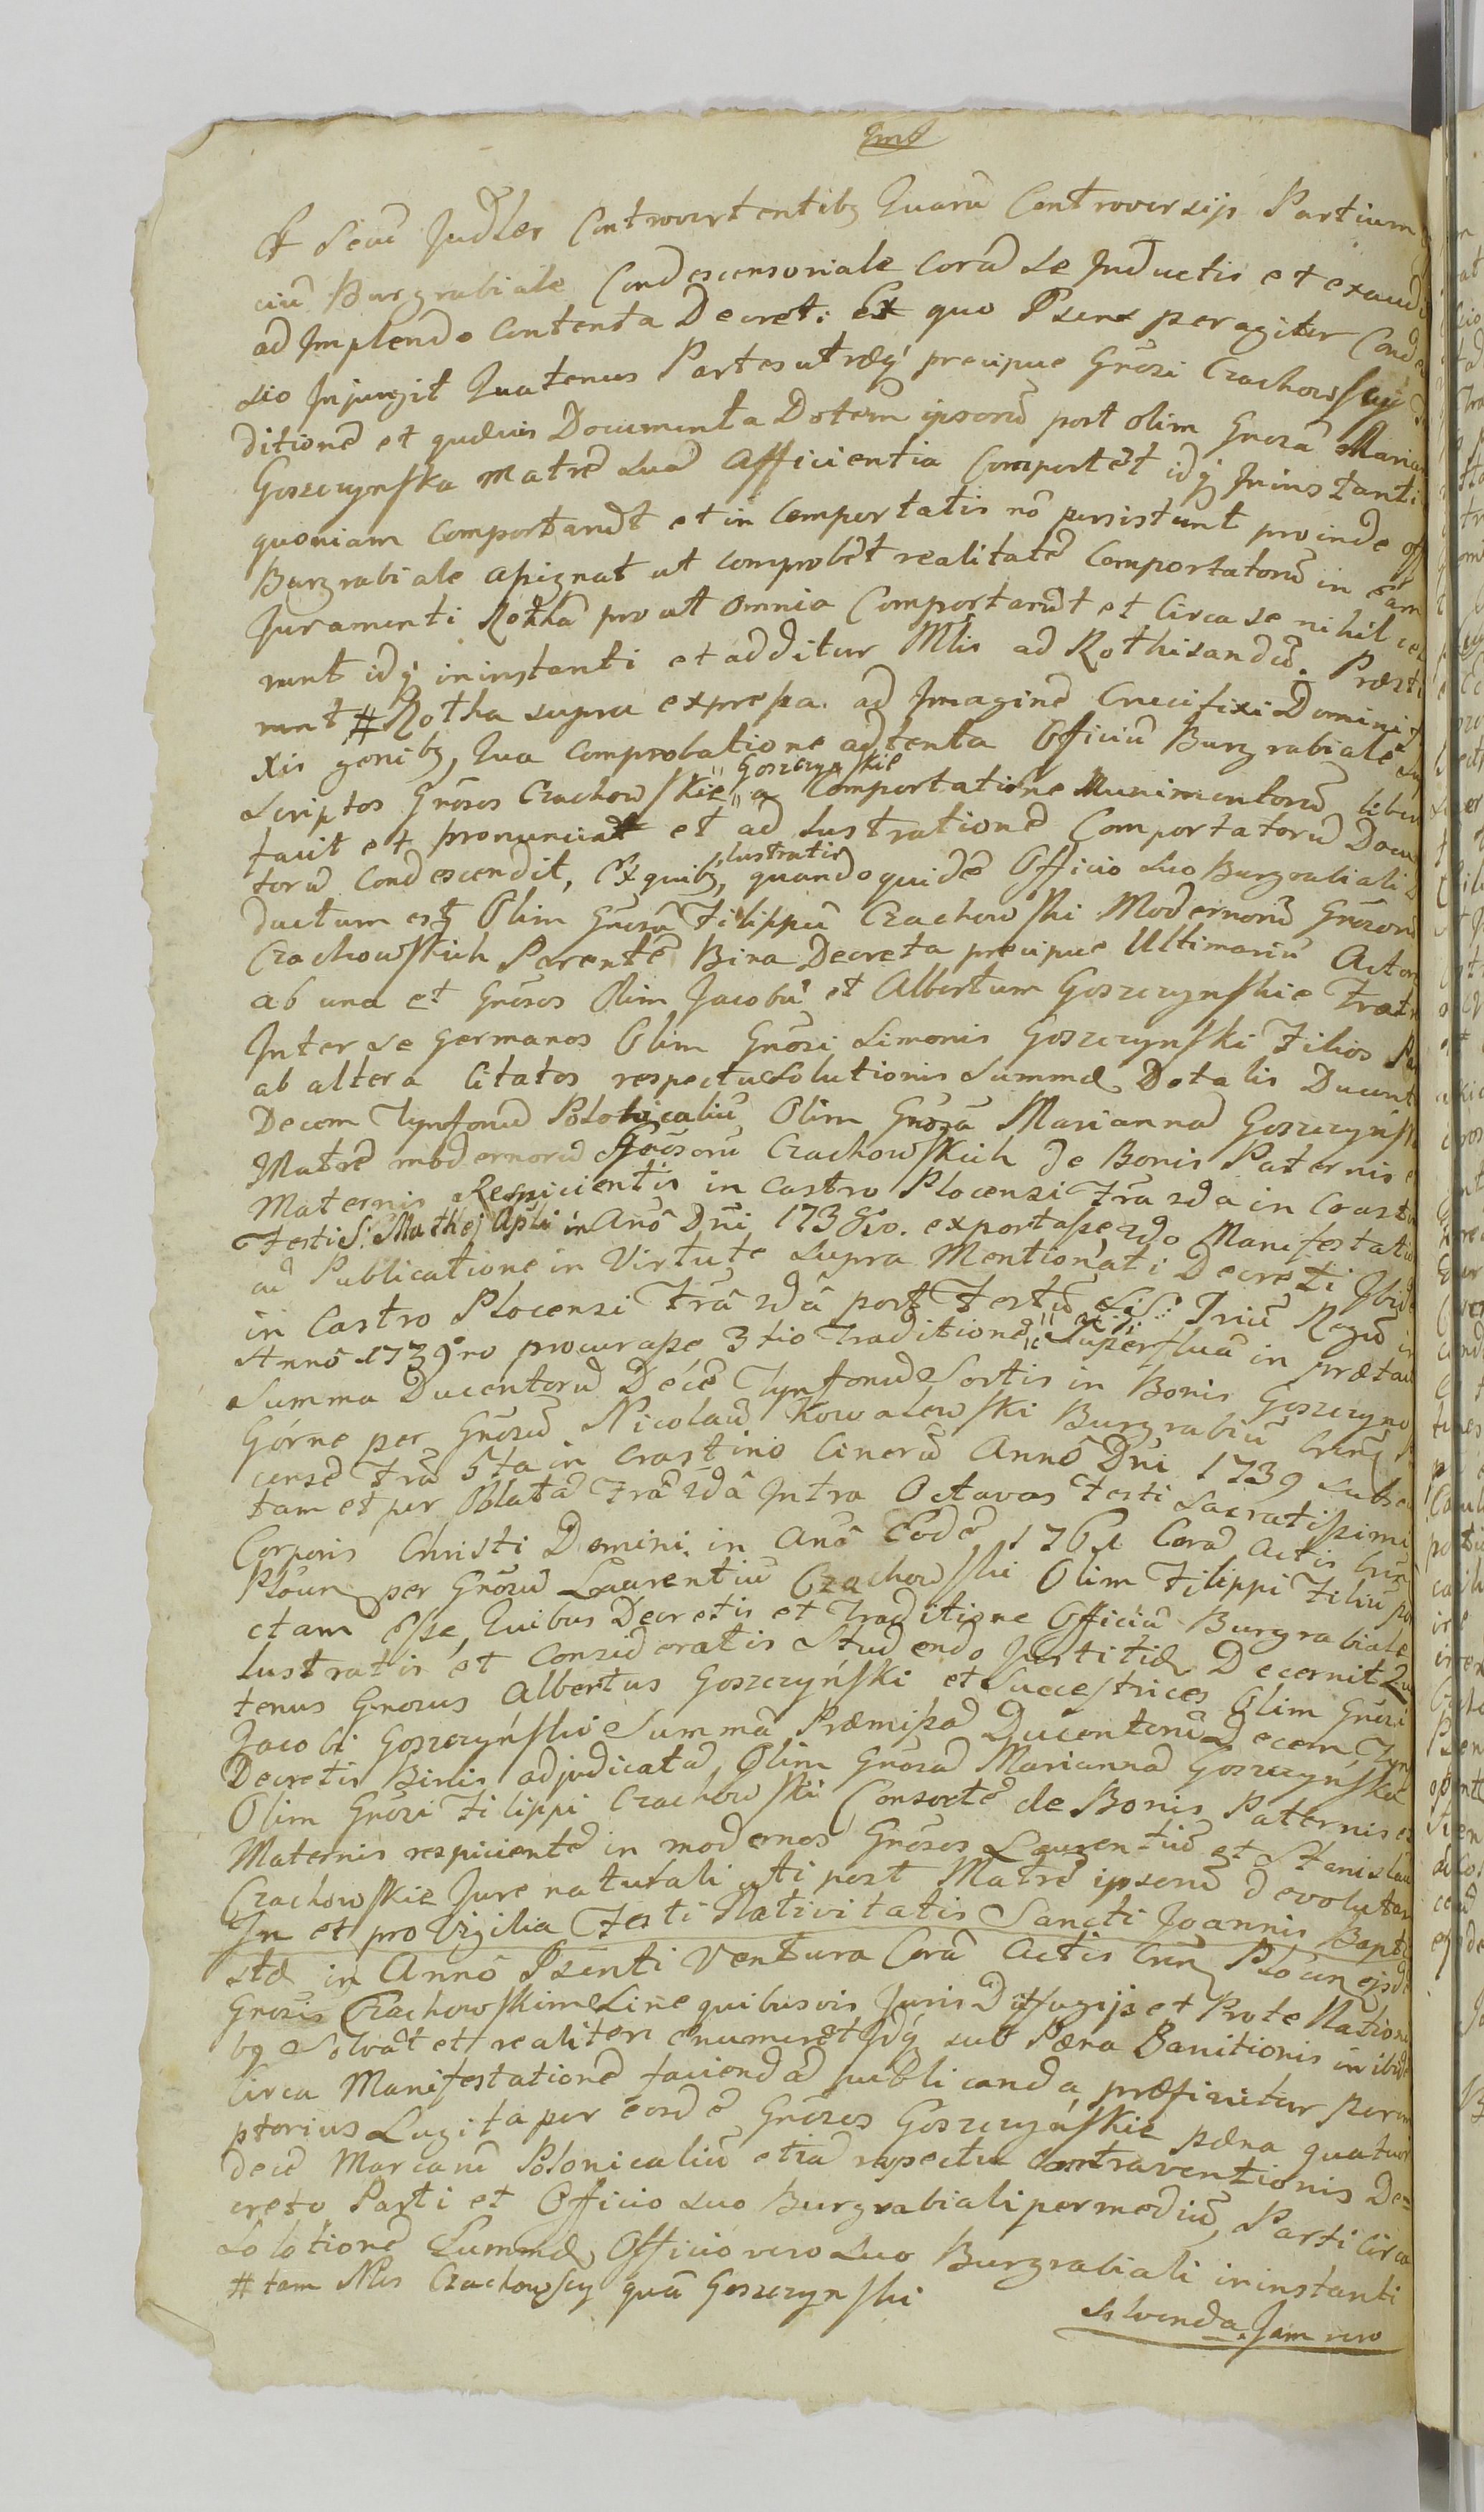 Et Secū Judłer Controvertentibg Quarū Controversijs Partium
ciū Burgrabiale Condescensoriale corā se Inductis et exaud
ad Implendo Contenta Decreti Ex quo Psens peragitur Conde
sio Injungit Quatenus Partes utræq precipue Gnōsi Czachowscy
ditionē et quævis Documenta Dotem ipsorū post olim Gnosā Marian
Goszczynska matrē suā afficientia Comportēt idq Ininstanti
quoniam Comportarūt et in Comportatis nō persistunt proinde off
Burgrabiale assignat ut comprobēt realitatē Comportatorū in eam
Juramenti Rothā prout omnia Comportarūt et Circa se nihil
runt idq ininstanti et additur Mlis ad Rothisandū. Præsti
runt # Rotha supra expressa. ad Imaginē Crucifixi Domini
xis genibg, Qua Comprobatione adtenta Officiū Burgrabiale
scriptos Gnōsos Czachowskie " Goszczynskie " a Comportatione Munimentorū liber
tavit et pronunciat et ad Lustrationē Comportatorū Docu
torū Condescendit, Ex quibg, lustratis quandoquidē Officio suo Burgrabiali
ductum est Olim Gnosū Filippū Czachowski Modernorū Gnōsorū
Czachowskich Parentē Bina Decreta precipue Ultimariū Actor
ab una et Gnōsos Olim Jacobū et Albertum Goszczynskie Fratr
Inter se germanos Olim Gnōsi Simonis Goszczynski Filios
ab altera Citatos respectu Solutionis Summæ Dotalis Ducent
Decem Tynfonū Polonicaliū Olim Gnosā Mariannā Goszczyńsk
Matrē modernorū Gnōsorū Czachowskich de Bonis Paternis
Maternis Respicientis in Castro Plocensi Frā 2da in Crasti
Festi S. Mathei Apli in Anō Dni 1738vo. exportasse 2do Manifestatio
ac Publicatione in Virtute Supra Mentionati Decreti Ibid
in Castro Plocensi Frā 2dā post Festū SS: Triū Regū in
Anno 1739no procurasse 3tio Traditionē Superfluā in præta
Summa Ducentorū Decē Tynfonū Sortis in Bonis Goszczyno
Górne per Gnōsū Nicolaū Kowalewski Burgrabiū
censē Frā 5ta in Crastino Cinerū Anno Dni 1739
tam et per Oblatā Frā 2dā Intra Octavas Festi Sacratissimi
Corporis Christi Domini in Anō Eodē 1761 Corā Actis
Plōcen per Gnōsū Laurentiū Czachowski Olim Filippi Filiū
ctam esse, Quibus Decretis et Traditione Officiū Burgrabiale
Lustratis et Consideratis Studendo Justitiæ Decernit
tenus Gnosus Albertus Goszczyński et Successtrices Olim Gnōsi
Jacobi Goszczyński Summā Præmissā Ducentorū Decem
Decretis Binis adjudicatā Olim Gnōsā Mariannā Goszczyńskā
Olim Gnōsi Filippi Czachowski Consortē de Bonis Paternis et
Maternis respicientē in modernos Gnōsos Laurentiū et Stanislau
Czachowskie Jure naturali uti post Matrē ipsorū devolutam
In et pro Vigilia Festi Nativitatis Sancti Joannis Bapti
stæ in Anno Psenti Ventura Corā Actis Plōcen ejsdē
Gnosis Czachowskim Sine quibusvis Juris Diffugijs et Protestation
bg Solvāt et realiter enumerēt Idq sub Pæna Banitionis in ibid
Circa Manifestationē faciendā publicanda, præfixitur
ptorius Lugita per eosdē Gnōsos Goszczyńskie pæna quatuor
decē Marcarū Polonicaliū etiā respectu Contraventionis De=
creto Parti et Officio suo Burgrabiali per mediū, Parti Circa
Solutionē Summæ, Officio vero suo Burgrabiali ininstanti
# tam Nlis Czachowscy quā Goszczynski
Solvenda. Jam vero